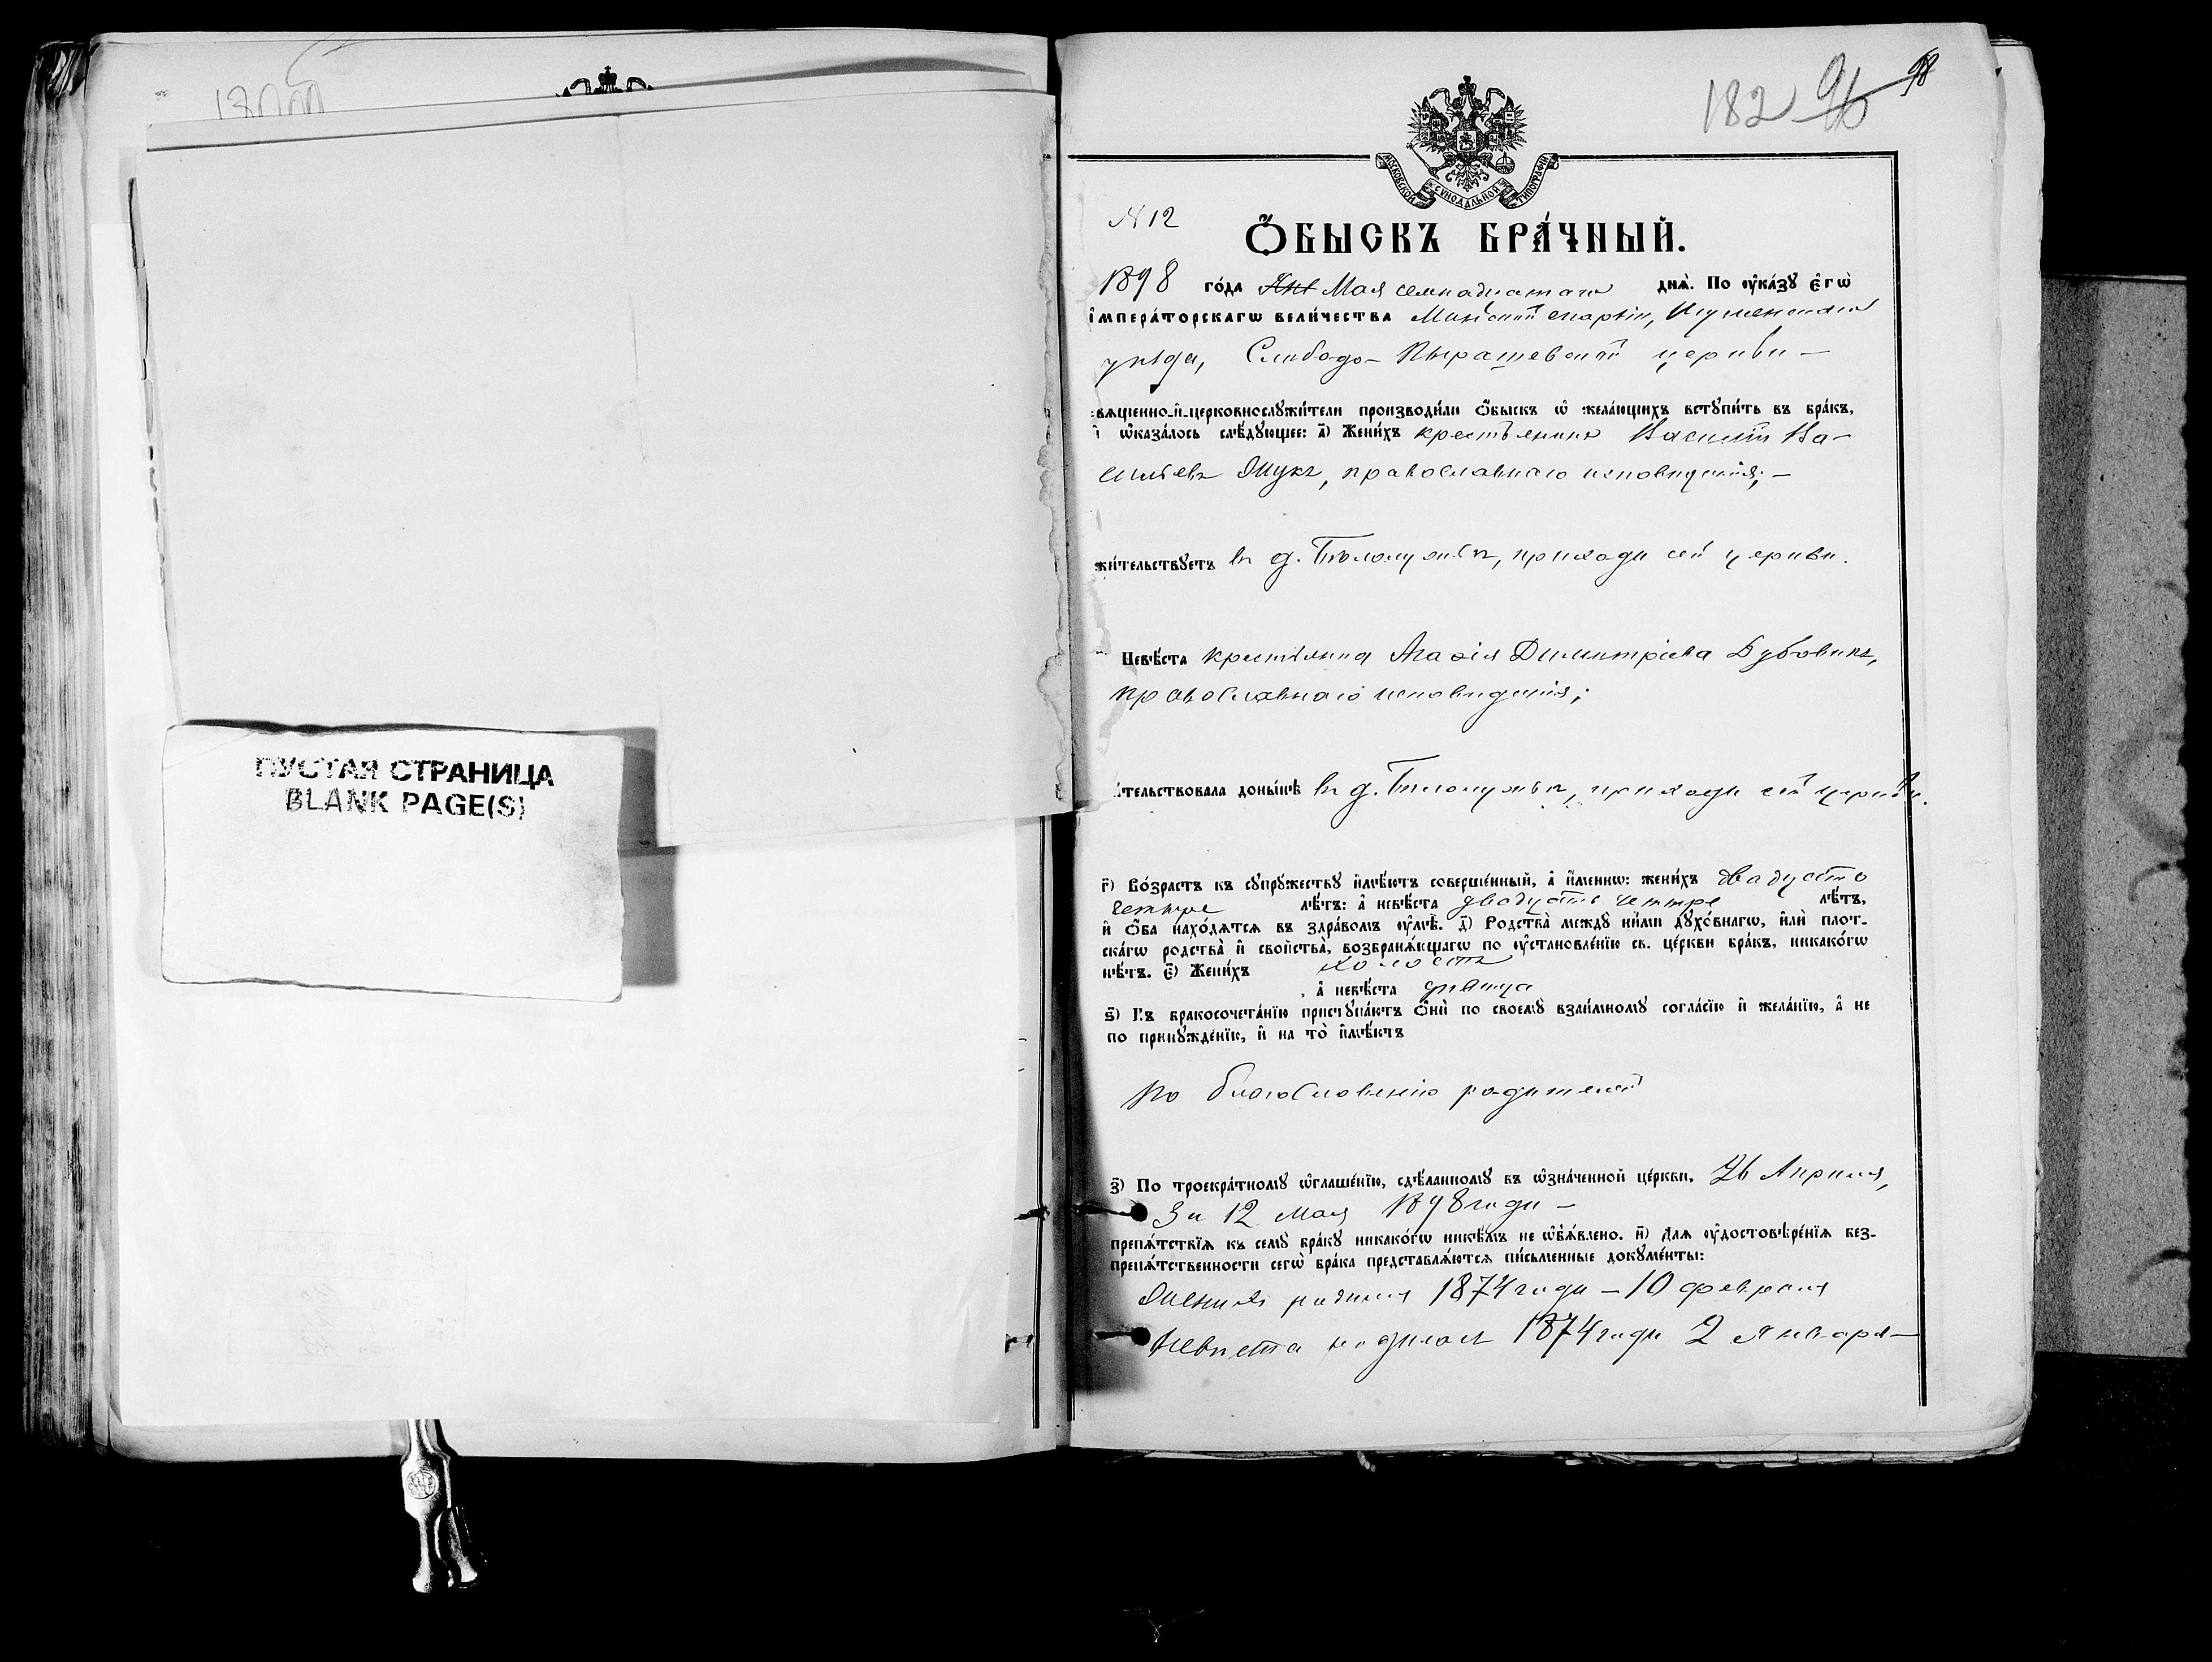 ПУСТАЯ СТРАНИЦА
BLANK PAGE(S)
182 96 98
МОСКОВСКОЙ СѴНОДАЛЬНОЙ ТИПОГРАФІИ
N 12
Ѻ҆БЫСКЪ БРА́ЧНЫЙ.
1898 го́да Мая семнадцатаго днѧ̀. По ᲂу҆ка́зꙋ є҆гѡ̀
і҆мпера́торскагѡ вели́чества Минской епархіи, Игуменскаго
уѣзда, Слободо-Пырашевской церкви —
свѧще́нно-и҆-церковнослꙋжи́тели производи́ли ѻ҆́быскъ ѡ҆ жела́ющихъ встꙋпи́ть въ бра́къ,
и҆ ѡ҆каза́лось слѣ́дꙋющее: а҃) Жени́хъ крестьянинъ Василій Ва-
сильевъ Жукъ, православнаго исповѣданія; —
жи́тельствꙋетъ въ д. приходѣ сей церкви.
Невѣ́ста крестьянка Агафія Димитріева Дубовикъ,
православнаго исповѣданія;
тельствовала доны́нѣ въ д. приходѣ сей церкви.
г҃) Во́зрастъ къ сꙋпрꙋжествꙋ и҆мѣ́ютъ соверше́нный, а҆ и҆́меннѡ: жени́хъ двадцати
четыре лѣ́тъ: а҆ невѣ́ста двадцать четыре лѣ́тъ,
и҆ ѻ҆́ба нахо́дѧтсѧ въ здра́вомъ ᲂу҆мѣ̀. д҃) Родства̀ междꙋ ни́ми дꙋхо́внагѡ, и҆лѝ плот-
ска́гѡ родства̀ и҆ сво́йства̀, возбранѧ́ющагѡ по ᲂу҆становле́нїю св. це́ркви бра́къ, никако́гѡ
нѣ́тъ. є҃) Жени́хъ холостъ
, а҆ невѣ́ста дѣвица
ѕ҃) Къ бракосочета́нїю пристꙋпа́ютъ ѻ҆нѝ по своемꙋ̀ взаи́мномꙋ согла́сїю и҆ жела́нїю, а҆ не
по принꙋжде́нїю, и҆ на то̀ и҆мѣ́ютъ
по благословенію родителей
з҃) По троекра́тномꙋ ѡ҆глаше́нїю, сдѣ́ланномꙋ въ ѡ҆зна́ченной це́ркви, 26 Апрѣля,
3 и 12 мая 1898 года —
препѧ́тствїѧ къ семꙋ̀ бра́кꙋ никако́гѡ никѣ́мъ не ѡ҆б̾ѧ́влено. и҃) Длѧ ᲂу҆достовѣре́нїѧ без-
препѧ́тственности сегѡ̀ бра́ка представлѧ́ютсѧ пи́сьменные докꙋме́нты:
Женихъ родился 1874 года — 10 февраля
Невѣста родилась 1874 года 2 Января —